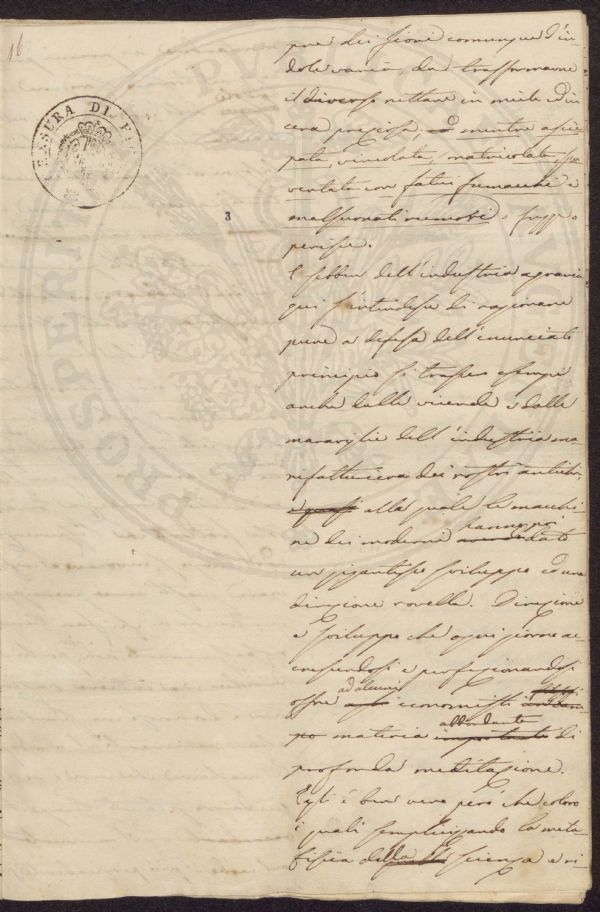 16
CENSURA DI
3
pre dei fiori comunque d'in
dole varia, da trasformarne
il diverso nettare in miele ed in
cera preziosa, ed mentre assie
pata, vincolata, matricolata, spa
ventata con fatui fumacchi e
malsuonati rumori, o fugge o
perisce.
E sebben dell'industria agraria
qui s'intendesse di ragionare
pure a difesa dell'enunciato
principio si trassero esempi
anche dalle vicende e dalle
maraviglie dell'industria ma
nifatturiera dei nostri antichi,
alla quale le macchi
ne dei moderni hanno poi dato
un gigantesco sviluppo ed una
direzione novella. Direzione
e sviluppo che ogni giorno ac
crescendosi e perfezionandosi
offre ad alcuni economisti
materia abbondante importante di
profonda meditazione.
Egli è ben vero però che coloro
i quali semplicizzando la meta
fisica della scienza e ri-
PROSPERI